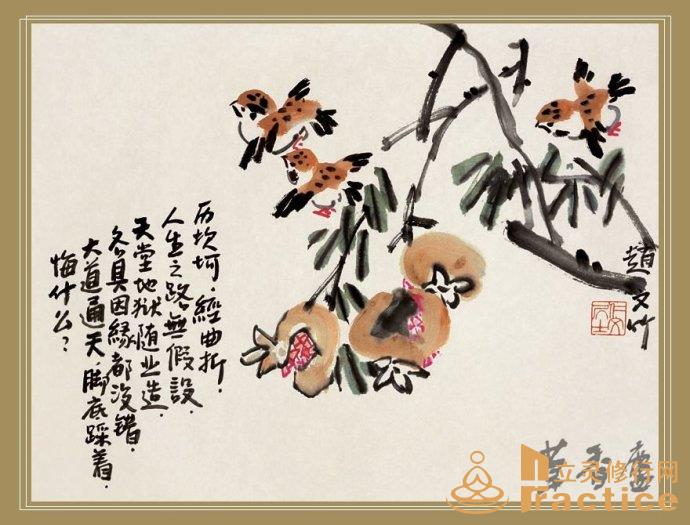 历坎坷.經曲折.
人生之路無假設.
天堂地狱随业造.
各具因縁都没錯.
大道通天脚底踩着.
悔什么?
趙文竹
立灵修行网
Practice